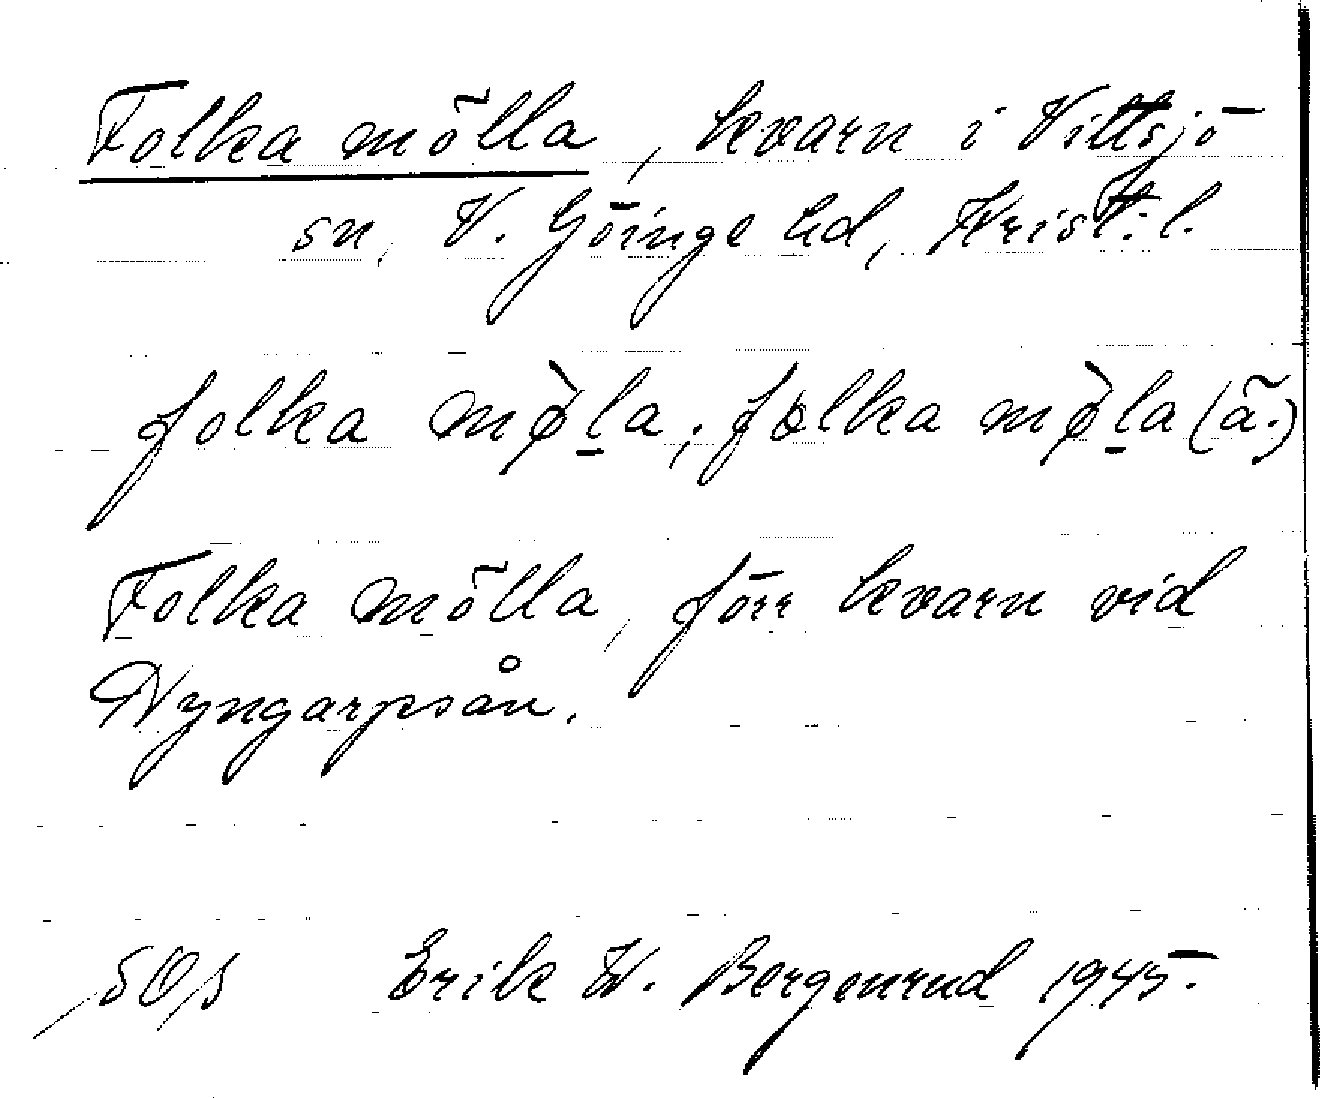 Folka mölla, kvarn i Vittsjö
sn, V. Göinge hd, Krist. l.
folka mø̀l̲a; fɔlka mø̀l̲a (ä.)
Folka mölla, förr kvarn vid
Nyngarpsån.
Erik W. Bergenrud 1945.